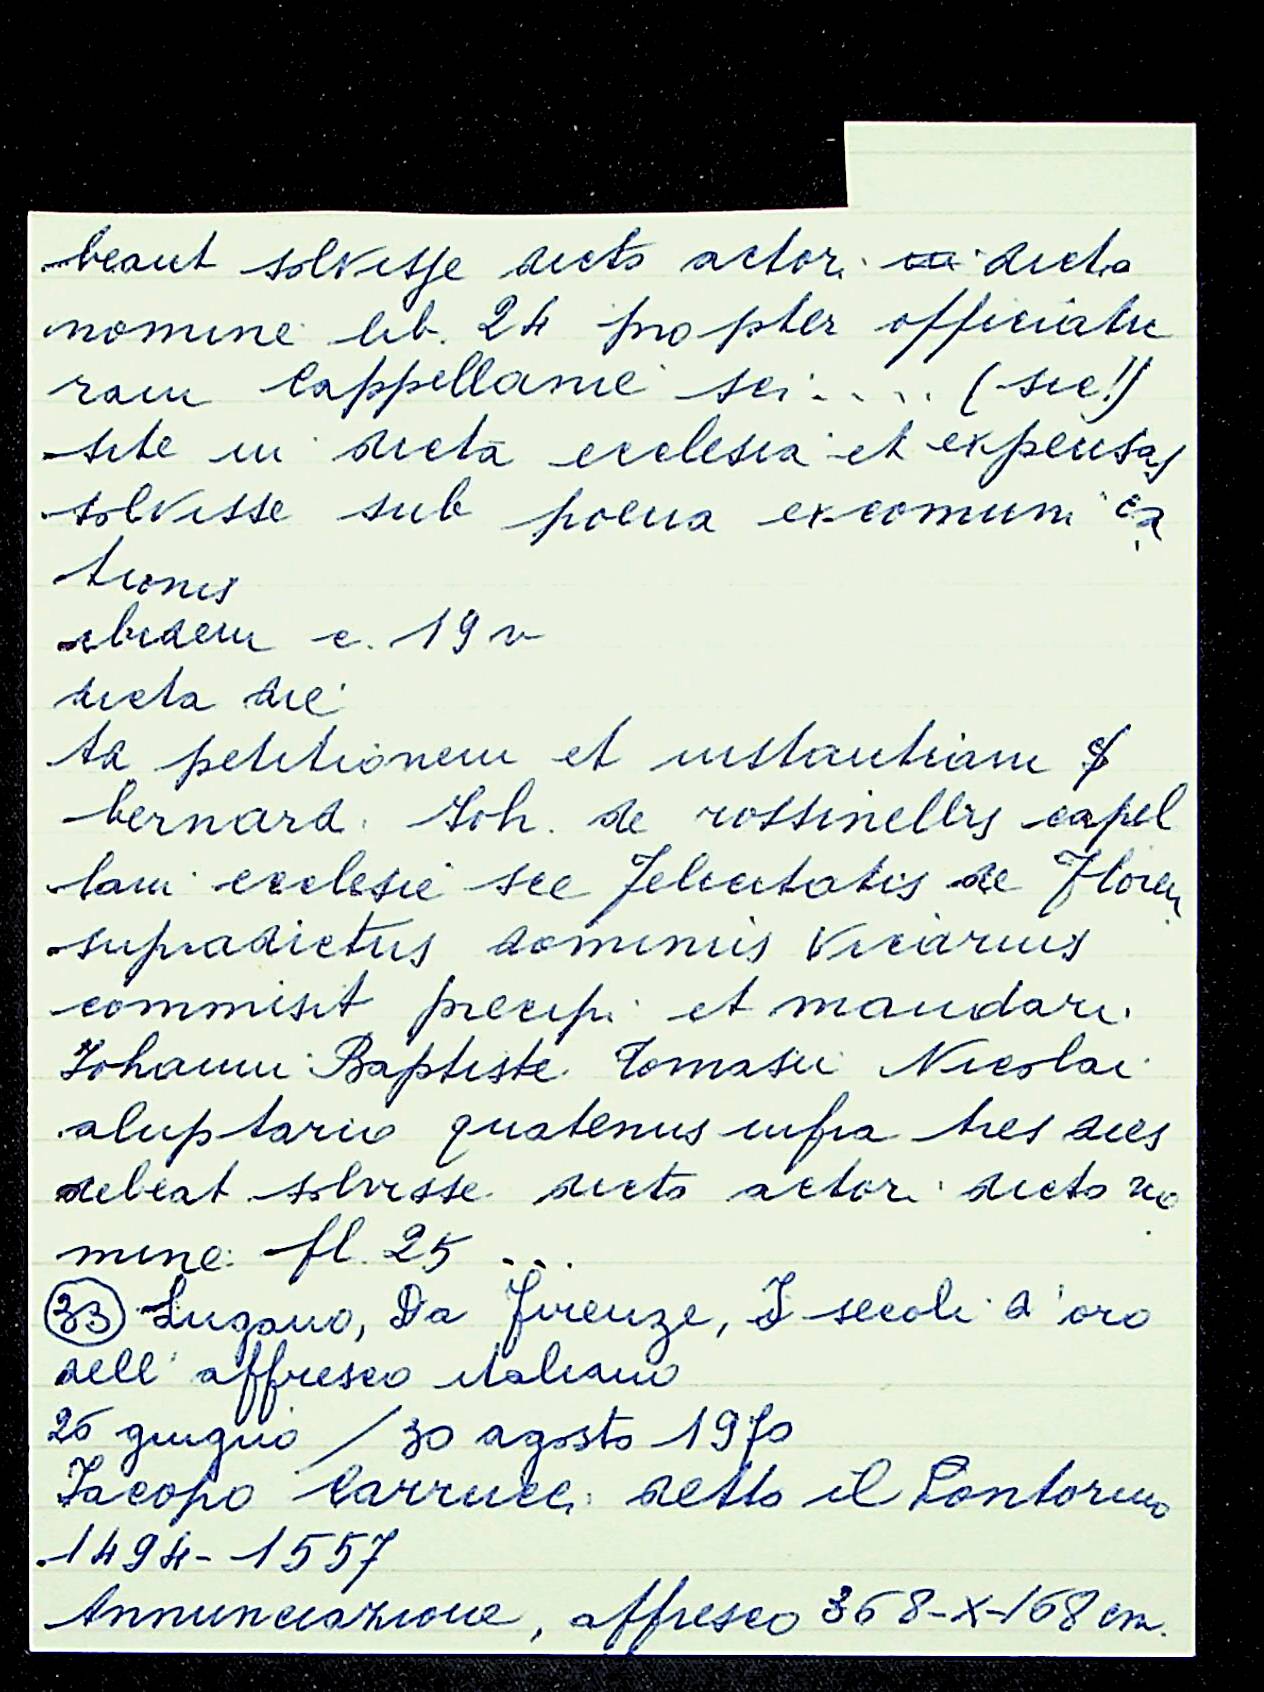 beant solvisse dicto actori dicto
nomine lib. 24 propter officiatu
ram Cappellanie sci .... (sic!)
site in dicta ecclesia et expensas
solvisse sub poena excomunica
tionis
ibidem c. 19 v
dicta die
Ad petitionem et instantiam S
bernard. Joh. de rossinellis capel
lani ecclesie sce Felicitatis de Floren
supradictus dominus Vicarius
commisit precipi et mandari
Johanni Baptiste Tomasii Nicolai
aluptario quatenus infra tres dies
debeat solvisse dicto actori dicto no
mine fl. 25 ...
33 Lugano, Da Firenze, I secoli d'oro
dell'affresco italiano
26 giugno / 30 agosto 1970
Jacopo Carrucci detto il Pontormo
1494-1557
Annunciazione, affresco 368-x-168 cm.